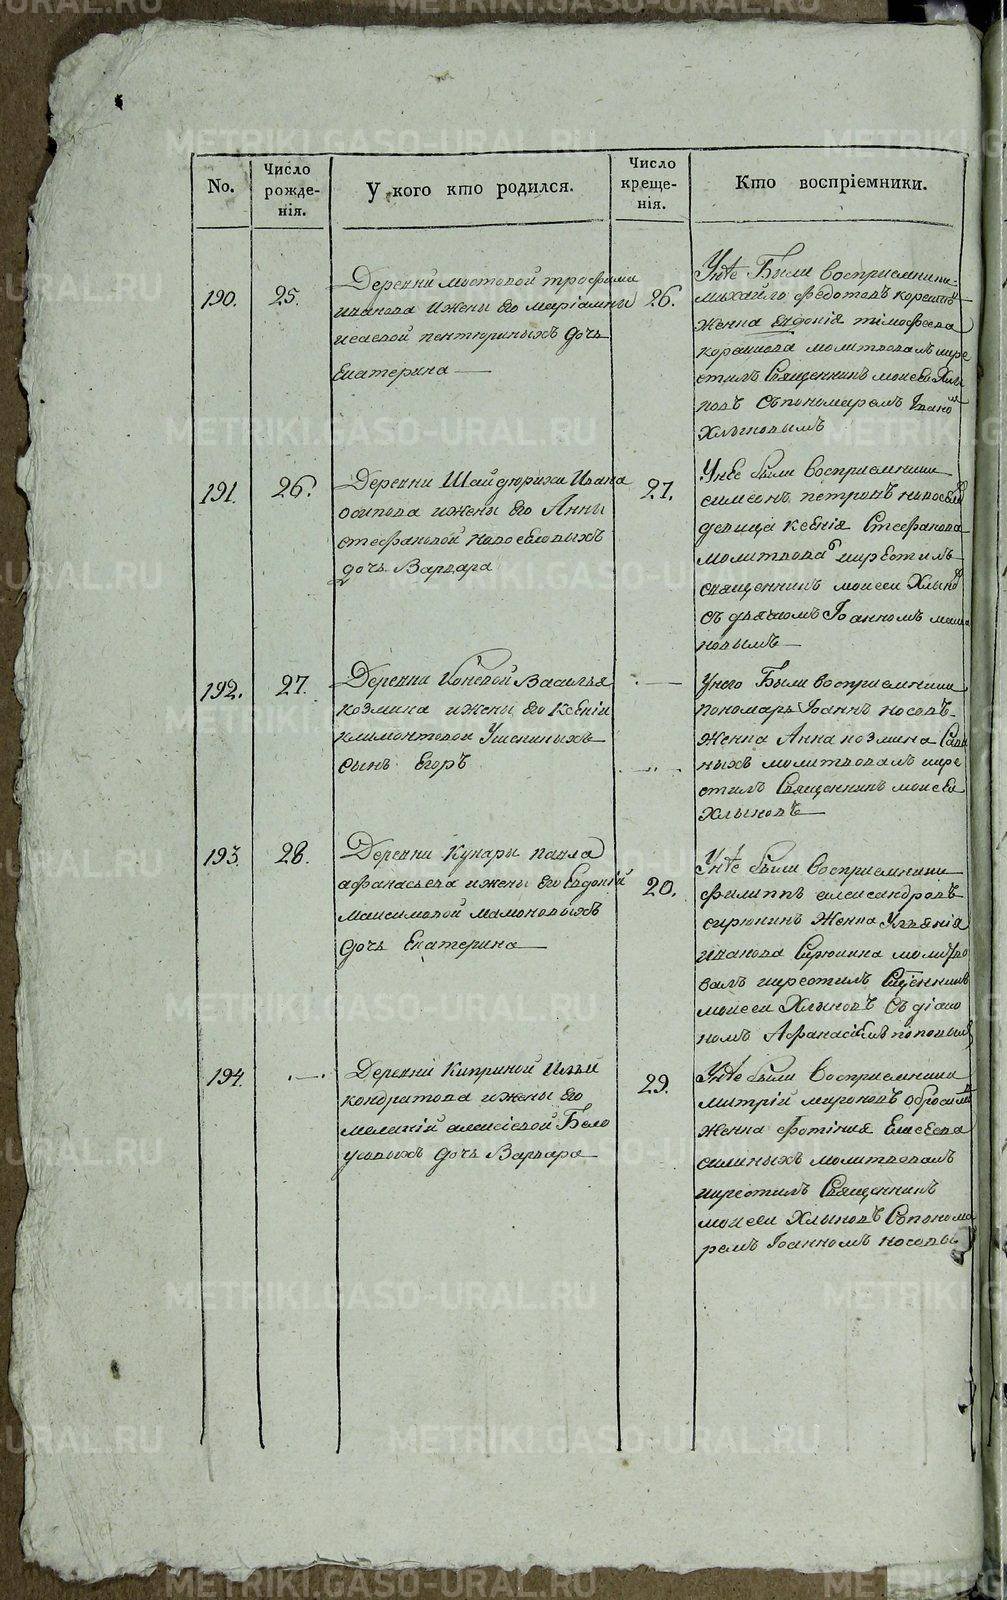 METRIKI.GASO-URAL.RU
No.
Число рожде-
нія.
У кого кто родился.
Число креще-
нія.
Кто воспріемники.
190.
25.
Деревни мостовой трофима
иванова ижены Его маріамны
исаевой пентюриныхъ дочь
Екатерина
26.
Унѣе Были восприемники
михайло федотовъ
Женка Евдокія тімофеева
молитвовалъ икре
стилъ Священникъ моисей Хлы
новъ съпономаремъ Іваномъ
Хлыновымъ
191.
26.
Деревни Шайдурихи Ивана
осипова ижены Его Анны
стефановой новоселовыхъ
дочь Варвара
27.
Унее были восприемники
симеонъ петровъ новоселовъ
девица ксенія Стефанова
молитвовалъ икрестилъ
священникъ моисеи Хлыновъ
съ дьячкомъ Іоанномъ
192.
27.
Деревни Коневой Василья
козмина ижены Его ксеніи
климонтовой
сынъ Егоръ
Унего Были восприемники
пономарь Іоаннъ носовъ
Женка Анна козмина
молитвовалъ икре
стилъ Священникъ моисеи
Хлыновъ
193.
28.
Деревни Кунары павла
афанасьева ижены Его Евдокіи
максимовой мамоновыхъ
дочь Екатерина
20.
Унѣе были восприемники
филиппъ александровъ
сирюкинъ Женка Ульянія
иванова Сирюкина молитво
валъ икрестилъ Сщенникъ
моисеи Хлыновъ Съ діако
номъ Афанасіемъ поповымъ
194.
Деревни Киприной Ильи
кондратова ижены его
меланіи алексіевой Бело
усовыхъ дочь Варвара
29.
Унѣе были Восприемники
митрій мироновъ
Женка фотінія Елисеева
силиныхъ молитвовалъ
икрестилъ Священникъ
моисеи Хлыновъ Съпонома
ремъ Іоанномъ носовы